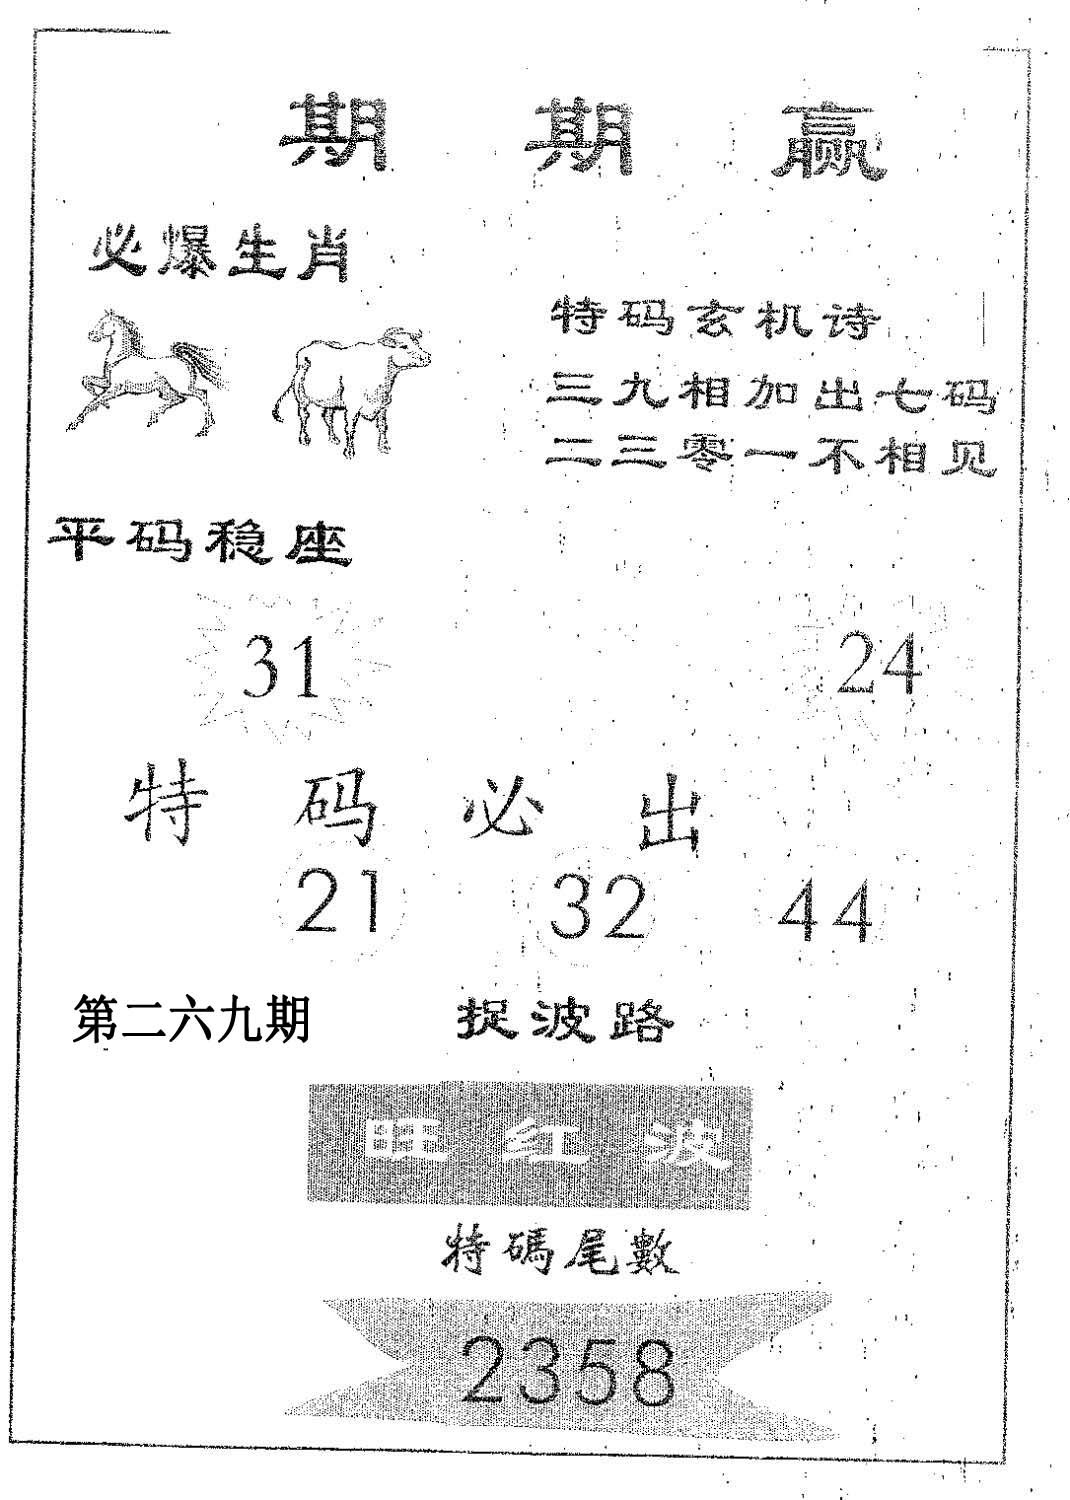 期期赢
必爆生肖
特码玄机诗
三九相加出七码
二三零一不相见
平码稳座
31 24
特码必出
21 32 44
第二六九期 捉波路
旺红波
特碼尾數
2358